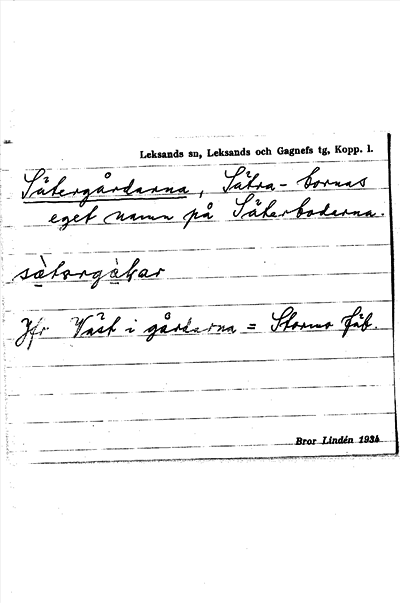 Leksands sn, Leksands och Gagnefs tg, Kopp. l.
Sätergårdarna, Sätra-bornas
eget namn på Säterbodarna.
Jfr Väst i gårdarna = Stormo fäb.
Bror Lindén 1934